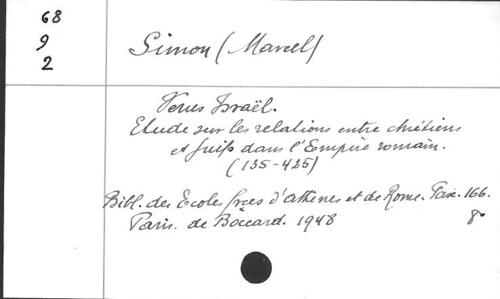 68
9
2
Simon (Marcel)
Verus Israël.
Etude sur les relations entre chrétiens
et Juifs dans l'Empire romain.
(135-425)
Bibl. des Ecoles frces d'Athènes et de Rome. Fasc. 166.
Paris. de Boccard. 1948 8°